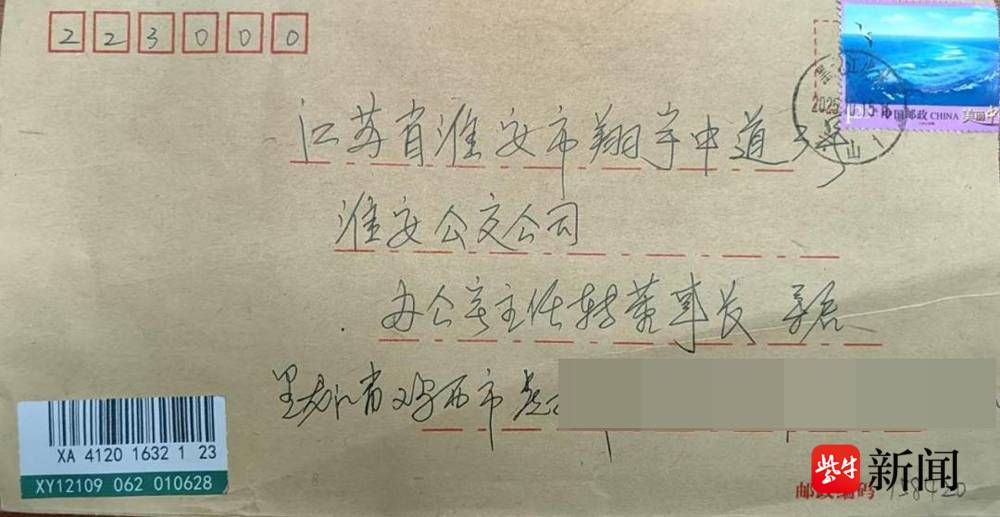 223000
江苏省淮安市翔宇中道3号
淮安公交公司
办公室主任转董事长 亲启
黑龙江省鸡西市
XA 4120 1632 1 23
XY12109 062 010628
中国邮政 CHINA
美丽中
2025.10.15.16
山1
紫牛新闻
邮政编码 158420